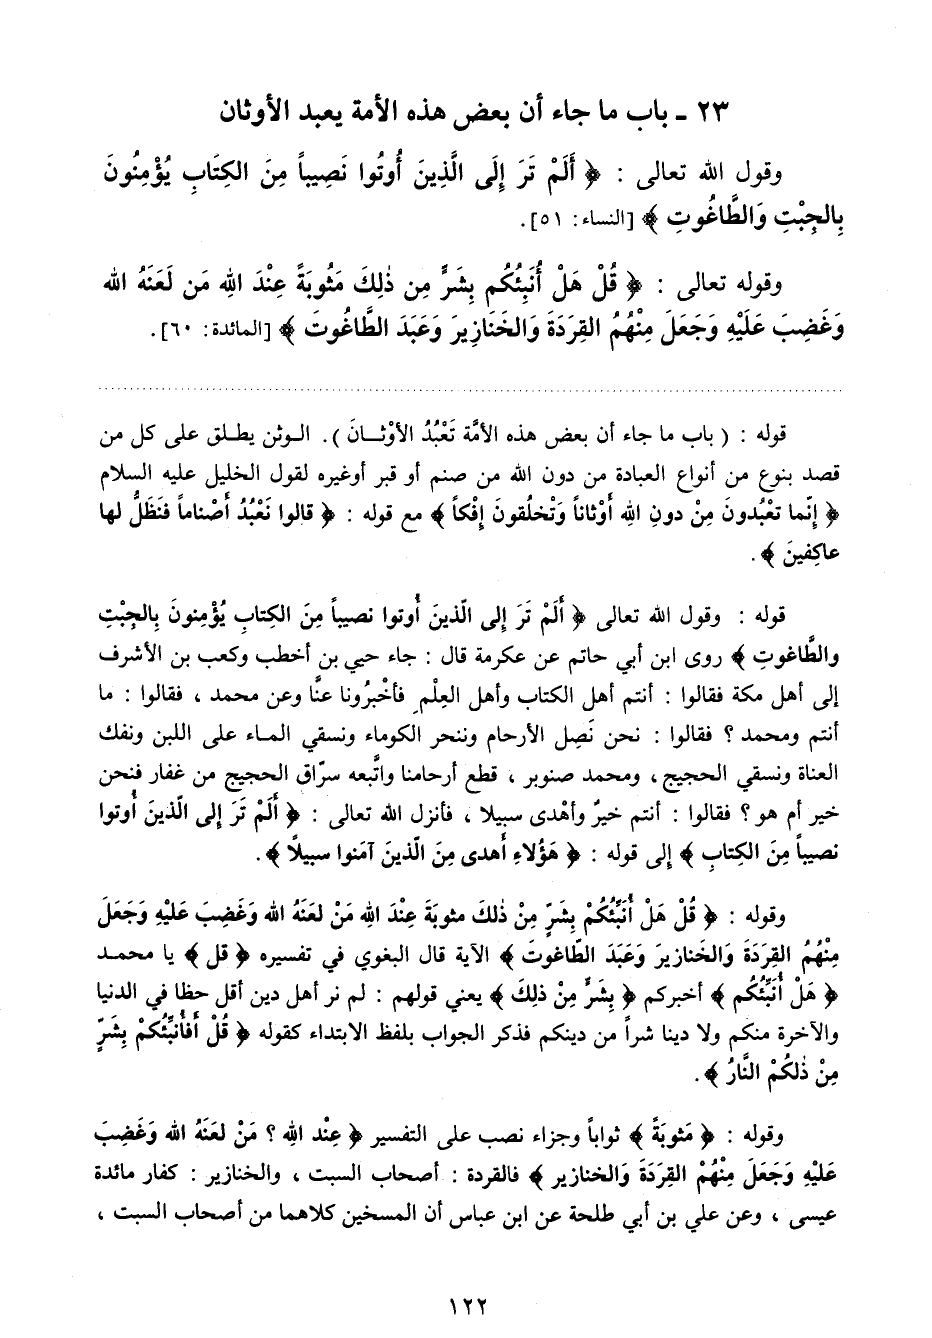 ٢٣ ـ باب ما جاء أن بعض هذه الأمة يعبد الأوثان
وقول الله تعالى : ﴿ أَلَمْ تَرَ إِلَى الَّذِينَ أُوتُوا نَصِيباً مِنَ الكِتَابِ يُؤْمِنُونَ
بِالجِبْتِ وَالطَّاغُوتِ ﴾ [النساء: ٥١].
وقوله تعالى : ﴿ قُلْ هَلْ أُنَبِئُكُم بِشَرٍّ مِن ذٰلِكَ مَثُوبَةً عِنْدَ اللهِ مَن لَعَنَهُ الله
وَغَضِبَ عَلَيْهِ وَجَعَلَ مِنْهُمُ القِرَدَةَ وَالخَنَازِيرَ وَعَبَدَ الطَّاغُوتَ ﴾ [المائدة: ٦٠].
قوله : ( باب ما جاء أن بعض هذه الأمَّة تَعْبُدُ الأوْثـانَ ). الـوثن يطلـق على كل من
قصد بنوع من أنواع العبادة من دون الله من صنم أو قبر أوغيره لقول الخليل عليه السلام
﴿ إنّما تعْبُدونَ مِنْ دونِ اللهِ أوْثاناً وَتخْلقونَ إفْكاً ﴾ مع قوله : ﴿ قالوا نَعْبُدُ أصْناماً فنَظَلُّ لها
عاكِفينَ ﴾ .
قوله : وقول الله تعالى ﴿ أَلَمْ تَرَ إلى الّذينَ أُوتوا نصيباً مِنَ الكِتابِ يُؤْمِنُونَ بِالجِبْتِ
والطَّاغوتِ ﴾ روى ابن أبي حاتم عن عكرمة قال : جاء حيي بن أخطب وكعب بن الأشرف
إلى أهل مكة فقالوا : أنتم أهل الكتاب وأهل العِلْم فأخْبِرُونا عنَّا وعن محمد ، فقالوا : ما
أنتم ومحمد ؟ فقالوا : نحن نَصِل الأرحام وننحر الكوماء ونسقي المـاء على اللبن ونفك
العناة ونسقي الحجيج ، ومحمد صنوبر ، قطع أرحامنا واتَّبعه سرّاق الحجيج من غفار فنحن
خير أم هو ؟ فقالوا : أنتم خيرٌ وأهْدى سبيلا ، فأنزل الله تعالى : ﴿ أَلَمْ تَرَ إلى الّذينَ أُوتوا
نصيباً مِنَ الكِتابِ ﴾ إلى قوله : ﴿ هَؤُلاءِ أهدى مِنَ الّذينَ آمَنوا سبيلاً ﴾.
وقوله : ﴿ قُلْ هَلْ أُنَبِّئُكُمْ بِشَرٍّ مِنْ ذٰلكَ مثوبَةً عِنْدَ اللهِ مَنْ لعَنَهُ الله وَغَضِبَ عليْهِ وَجَعَلَ
مِنْهُمُ القِرَدَةَ وَالخَنازيرَ وَعَبَدَ الطّاغوتَ ﴾ الآية قال البغوي في تفسيره ﴿ قل ﴾ يا محمـد
﴿ هَلْ أُنَبِّئُكُم ﴾ أخبركم ﴿ بِشَرٍّ مِنْ ذلِكَ ﴾ يعني قولهم : لم نر أهل دين أقل حظا في الدنيا
والآخرة منكم ولا دينا شراً من دينكم فذكر الجواب بلفظ الابتداء كقوله ﴿ قُلْ أفأنبِّئُكُمْ بِشَرٍّ
مِنْ ذلكُمْ النَّارُ ﴾.
وقوله : ﴿ مَثوبَةً ﴾ ثواباً وجزاء نصب على التفسير ﴿ عِنْد اللهِ ؟ مَنْ لعَنَهُ الله وَغَضِبَ
عَلَيْهِ وَجَعَلَ مِنْهُمْ القِرَدَةَ وَالخنازير ﴾ فالقردة : أصحاب السبت ، والخنازير : كفار مائدة
عيسى ، وعن علي بن أبي طلحة عن ابن عباس أن المسخين كلاهما من أصحاب السبت ،
١٢٢